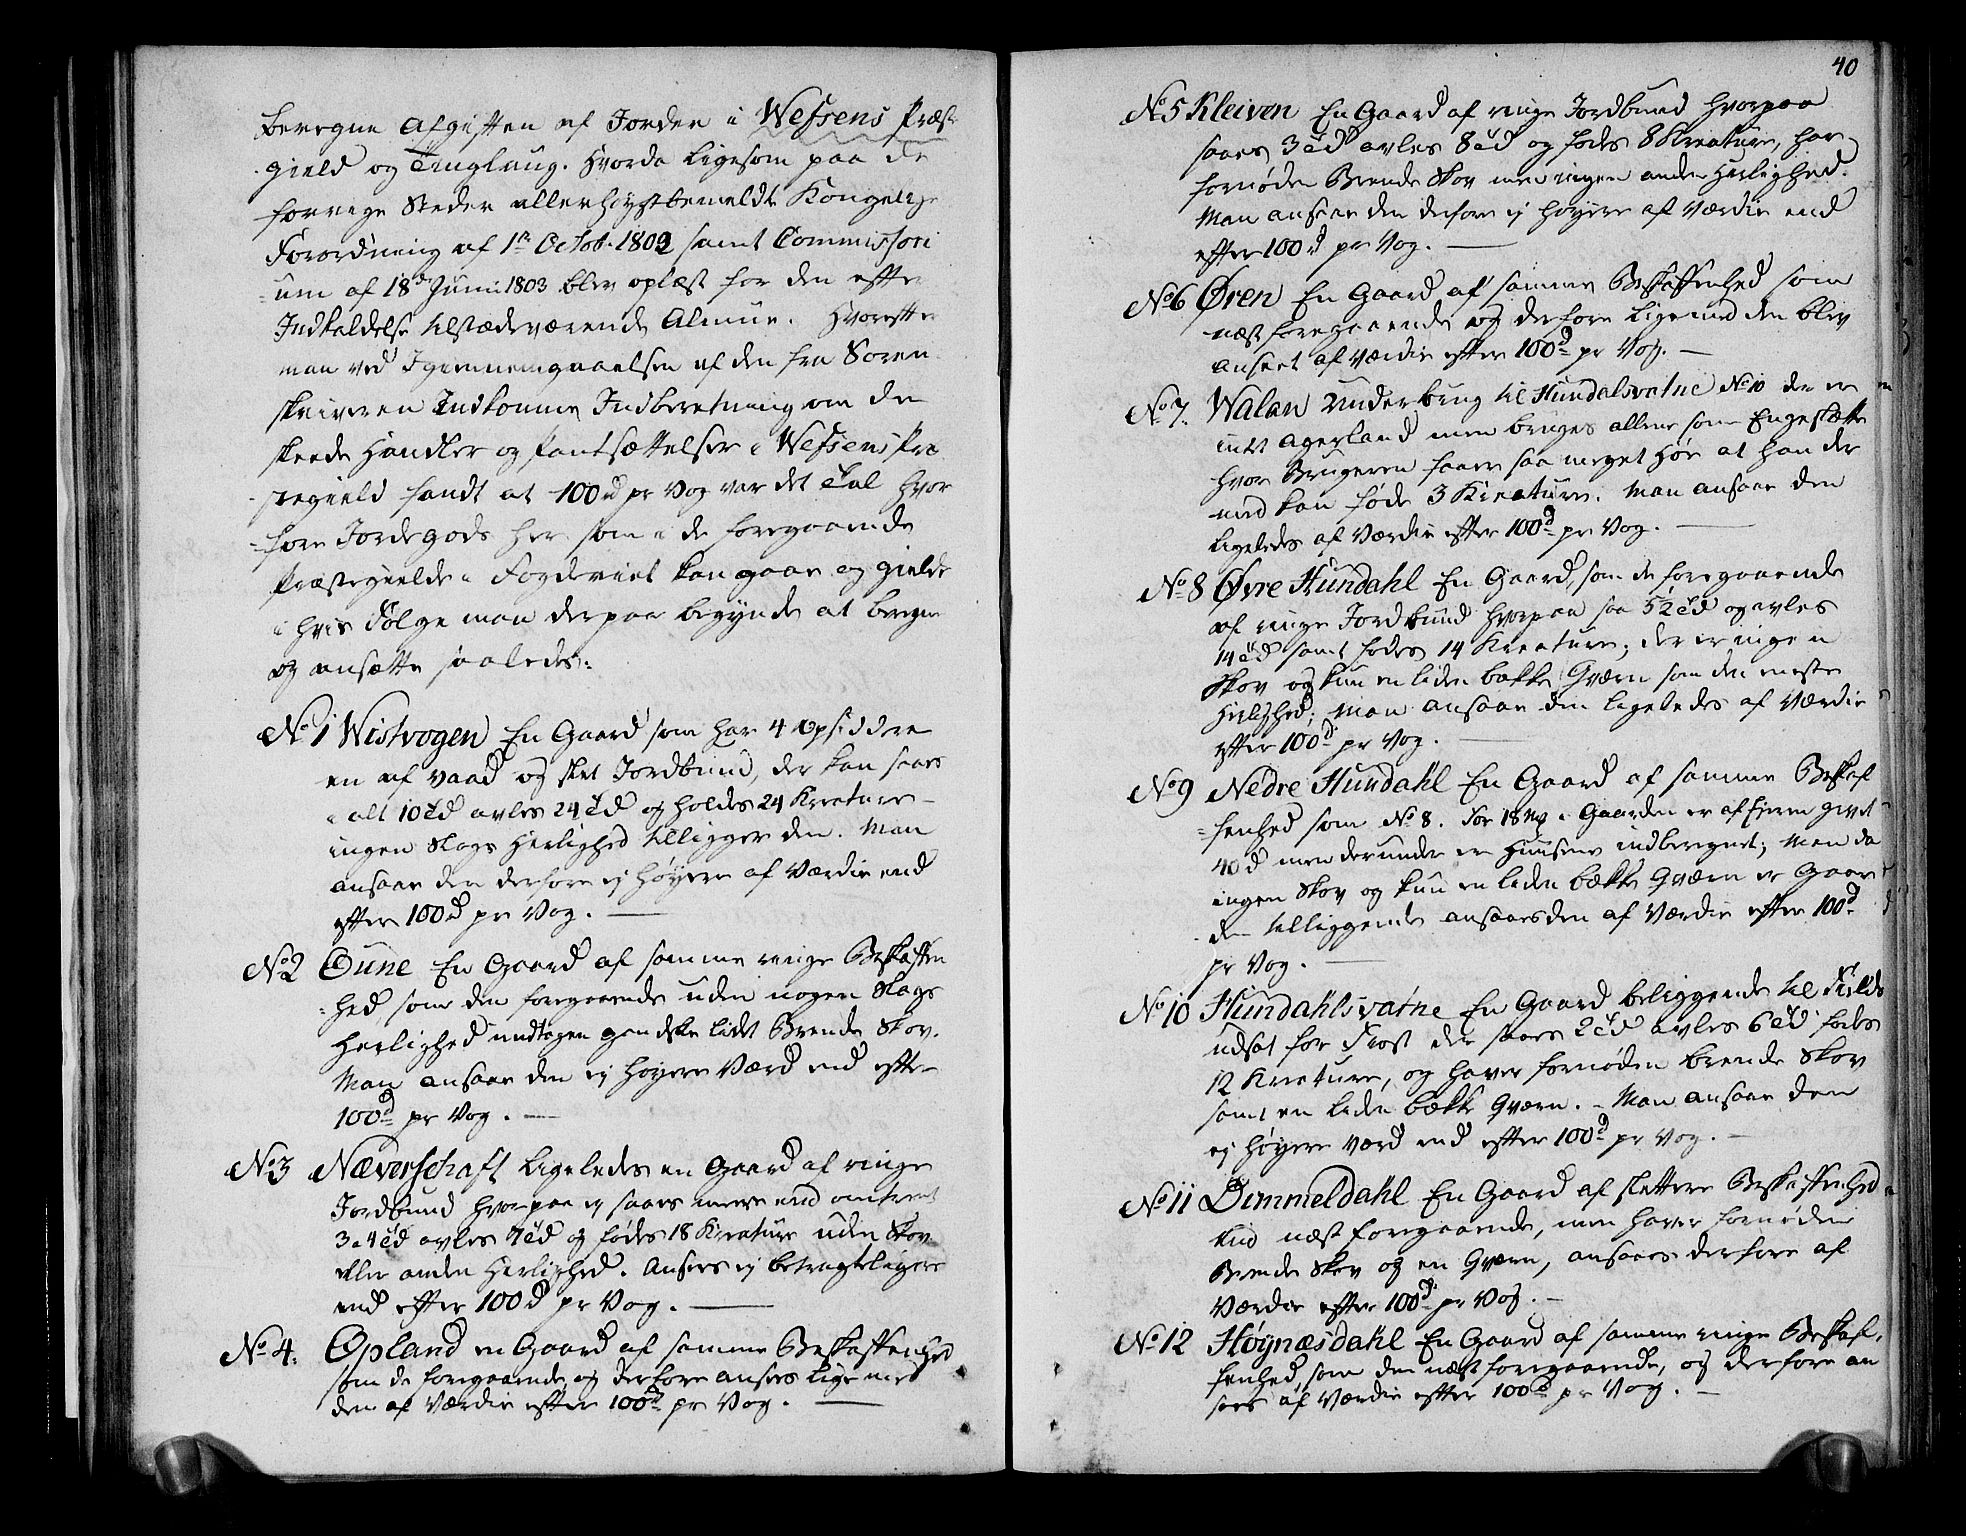 beregne Afgiften af Jorder i Wefsens Præste
gield og Tinglaug. Hvorda ligesom paa de
forrige Steder allerhøystbemeldte Kongelige
Forordning af 1te Octob. 1802 samt Commissori
um af 18de Junii 1803 blev oplæst for den efter
Indkaldelse tilstædeværende Almue. Hvorefter
man ved Igiennemgaaelsen af den fra Soren
skriveren Indkomne Indberetning om de
skeede Handler og Pantsættelser i Wefsens Præ
stegield fandt at 100 d pr Vog var det Tal hvor
fore Jordegods her som i de foregaaende
Præstegielde i Fogderiet kan gaae og gielde
i hvis Følge man derpaa begyndte at beregne
og ansætte saaledes:
No 1 Wistvogen En Gaard som har 4 Opsiddere
en af vaad og slet Jordbund, der kan saaes
i alt 10 Td avles 24 Td og holdes 24 Kreature
ingen Slags Herlighed tilligger den. Man
ansaae den derfore ej høyere af Værdie end
efter 100 d pr Vog.
No 2 Oune En Gaard af samme ringe Beskaffen
hed, som den foregaaende uden nogen Slags
Herlighed undtagen gandske lidet Brende Skov.
Man ansaae den ej høyere Værd end efter
100 d pr Vog.
No 3 Næverschaft ligeledes en Gaard af ringe
Jordbund hvorpaa ej saaes mere end omtrent
3 a 4 Td avles 7 Td og fødes 18 Kreature uden Skov
eller anden Herlighed. Ansees ej betragteligere
end efter 100 d pr Vog.
No 4. Opland en Gaard af samme Beskaffenhed
som de foregaaende, og derfore ansees lige med
den af Værdie efter 100 d pr Vog.
40
No 5 Kleiven En Gaard af ringe Jordbund hvorpaa
saaes 3 Td avles 8 Td og fødes 8 Kreature, har
fornøden Brende Skov men ingen anden Herlighed.
Man ansaae den derfore ej høyere af Værdie end
efter 100 d pr Vog.
No 6 Øren En Gaard af samme Beskaffenhed som
næst foregaaende og derfore lige med den blev
anseet af Værdie efter 100 d pr Vog.
No 7. Walan Underbrug til Hundalsvatne No 10 der er
intet Agerland men bruges allene som Engeslætte
hvor Brugeren faaer saa meget Høe at han der
med kan føde 3 Kreature. Man ansaae den
ligeledes af Værdie efter 100 d pr Vog.
No 8 Øvre Hundahl En Gaard, som de foregaaende
af ringe Jordbund hvorpaa saaes 5½ Td og avles
14 Td samt fødes 14 Kreature; der er ingen
Skov og kun en liden bække Qværn som den eneste
Herlighed; Man ansaae den ligeledes af Værdie
efter 100 d pr Vog.
No 9 Nedre Hundahl En Gaard af samme Beskaf
fenhed som No 8. For 18 Mk i Gaarden er af Eieren givet
40 d men derunder er Huusene indberegnet; Man da
ingen Skov og kun en liden bække Qværn er Gaar
den tilliggende ansaaes den af Værdie efter 100 d
pr Vog.
No 10 Hundahlsvatne En Gaard beliggende til Fields
udsat for Frost der saaes 2 Td avles 6 Td fødes
12 Kreature, og haver fornøden brende Skov
samt en liden bække Qværn. - Man ansaae den
ej høyere værd end efter 100 d pr Vog.
No 11 Dimmeldahl En Gaard af slettere Beskaffenhed
end næst foregaaende, men haver fornøden
Brende Skov og en Qværn, ansaaes derfore af
Værdie efter 100 d pr Vog.
No 12 Høynæsdahl En Gaard af samme ringe Beskaf,
fenhed, som den næst foregaaende, og derfore an
sees af Værdie efter 100 d pr Vog.